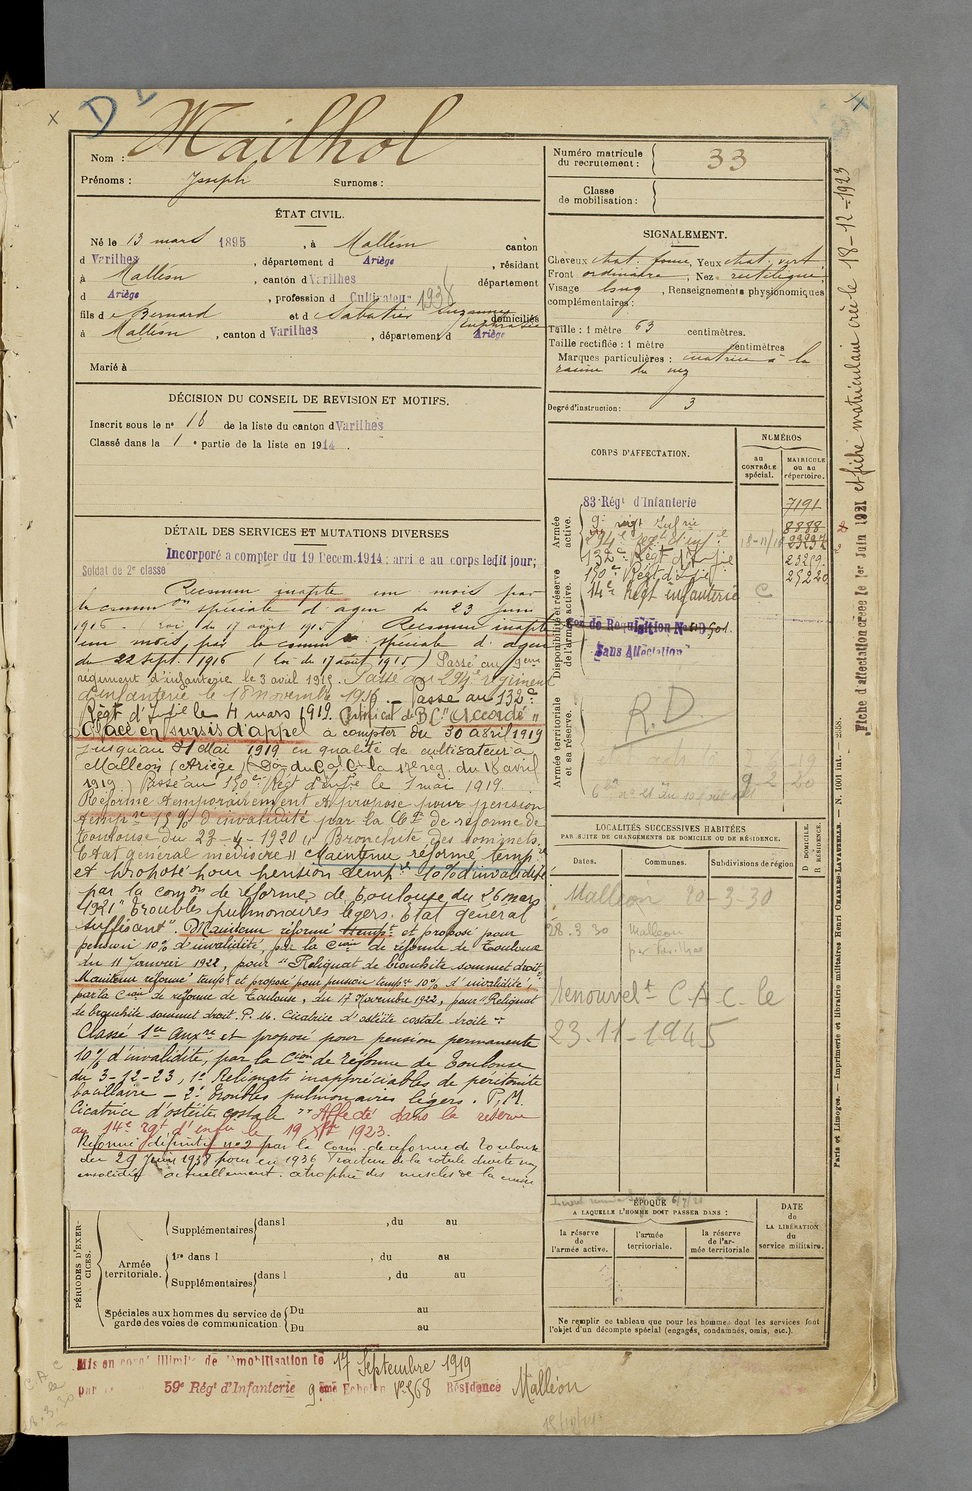 Nom : Mailhol
Prénoms : Joseph Surnoms :
ÉTAT CIVIL.
Né le 13 mars 1895, à Malléon canton
d Varilhes, département d Ariège, résidant
à Malléon, canton d Varilhes département
d Ariège, profession d Cultivateur 1938
fils de Bernard et d Sabatier Suzanne Euphrasie domiciliés
à Malléon, canton d Varilhes, département d Ariège
Marié à
DÉCISION DU CONSEIL DE REVISION ET MOTIFS.
Inscrit sous le n° 16 de la liste du canton d Varilhes
Classé dans la 1e partie de la liste en 1914.
DÉTAIL DES SERVICES ET MUTATIONS DIVERSES
Incorporé a compter du 19 Decem. 1914; arrivé au corps ledit jour;
Soldat de 2e classe
Reconnu inapte un mois par
la common spéciale d'agen du 23 juin
1916. (loi du 17 août 1915) Reconnu inapte
un mois, par la common spéciale d'agen
du 22 sept. 1916 (loi du 17 août 1915) Passé au 9eme
régiment d'infanterie le 3 avril 191 . Passé au 294e régiment
d'infanterie le 18 novembre 1916. Passé au 132e
Régt d'Infie le 4 mars 1919. Certificat de B.C. "Accordé"
Placé en sursis d'appel à compter du 30 avril 1919
jusqu'au 31 Mai 1919 en qualité de cultivateur à
Malléon (Ariège) Don du Gal Ct la 17e rég. du 18 avril
1919) Passé au 150e Régt d'Infie le 1 mai 1919.
Réformé temporairement et proposé pour pension
tempre 15% d'invalidité par la Con de réforme de
Toulouse du 23-4-1920 " Bronchite des sommets.
Etat général médiocre " Maintenu réformé tempre
et proposé pour pension tempre 10% d'invalidité
par la comon de réforme de Toulouse du 26 mars
1921 " Troubles pulmonaires légers. Etat général
suffisant". Maintenu réformé tempre et proposé pour
pension 10% d'invalidité par la Cion de réforme de Toulouse
du 11 Janvier 1922, pour "Reliquat de bronchite sommet droit"
Maintenu réformé tempre et proposé pour pension tempre 10% d'invalidité,
par la Cion de réforme de Toulouse, du 17 Novembre 1922, pour "Reliquat
de bronchite sommet droit. P.M. Cicatrice d'ostéite costale droite"
Classé Ser auxre et proposé pour pension permanente
10% d'invalidité, par la Cion de réforme de Toulouse
du 3-12-23, 1° Reliquats inappréciables de péritonite
bacillaire - 2° Troubles pulmonaires légers. P.M.
Cicatrice d'ostéite costale " Affecté dans la réserve
au 14e rgt d'infie le 19 Xbre 1923.
Réformé définitif n° 2 par la Comn de réforme de Toulouse
du 29 Juin 1938 pour en 1936 fracture de la rotule droite
actuellement. atrophie des muscles de la cuisse
PÉRIODES D'EXERCICES.
Supplémentaires dans l , du au
Armée territoriale. 1re dans l , du au
Supplémentaires dans l , du au
Spéciales aux hommes du service de garde des voies de communication Du au
Du au
Mis en congé illimité de démobilisation le 17 Septembre 1919
par 59e Régt d'Infanterie 9eme Echelon N° 568 Résidence Malléon
Numéro matricule du recrutement : 33
Classe de mobilisation :
SIGNALEMENT.
Cheveux chat. foncé, Yeux chat. vert
Front ordinaire, Nez rectiligne
Visage long, Renseignements physionomiques
complémentaires :
Taille : 1 mètre 63 centimètres.
Taille rectifiée : 1 mètre centimètres
Marques particulières : cicatrice à la
racine du nez
Degré d'instruction : 3
CORPS D'AFFECTATION.
NUMÉROS
au CONTRÔLE spécial.
MATRICULE ou au répertoire.
Armée active.
83e Régt d'Infanterie 7191
9e régt Infrie 8888
294e régt d'infie 18-11/16 23237
132e Régt d'Infie
150e Régt d'Infie 25220
14e Régt infanterie C
Disponibilité et réserve de l'armée active.
de Requisition
Sans Affectation
Armée territoriale et sa réserve.
R.D.
9-2-20
LOCALITÉS SUCCESSIVES HABITÉES
PAR SUITE DE CHANGEMENTS DE DOMICILE OU DE RÉSIDENCE.
Dates. Communes. Subdivisions de région D DOMICILE. R RÉSIDENCE.
Malléon 20-3-30
28.3.30 Malleon
par Varilhes
Renouvelt C.A.C. le
23.11-1945
ÉPOQUE
A LAQUELLE L'HOMME DOIT PASSER DANS :
la réserve de l'armée active.
l'armée territoriale.
la réserve de l'armée territoriale.
DATE de LA LIBÉRATION du service militaire.
Ne remplir ce tableau que pour les hommes dont les services font
l'objet d'un décompte spécial (engagés, condamnés, omis, etc.).
Fiche d'affectation créée le 1er Juin 1921 et fiche matriculaire créée le 18-12-1923
Paris et Limoges. — Imprimerie et librairie militaires Henri CHARLES-LAVAUZELLE. — N. 1001 int. — 2558.